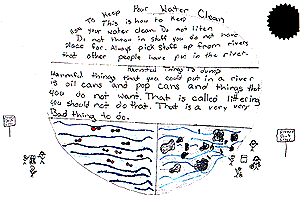 Keep Your Water Clean
To This is how to keep
your water clean. Do not liter.
Do not throw in stuff you do not have
place for. Always pick stuff up from rivers
that other people have put in the river.
Harmful Things To dump
Harmful things that you could put in a river
is oil cans and pop cans and things that
you do not want. That is called littering
you should not do that. That is a very very
Bad thing to do.